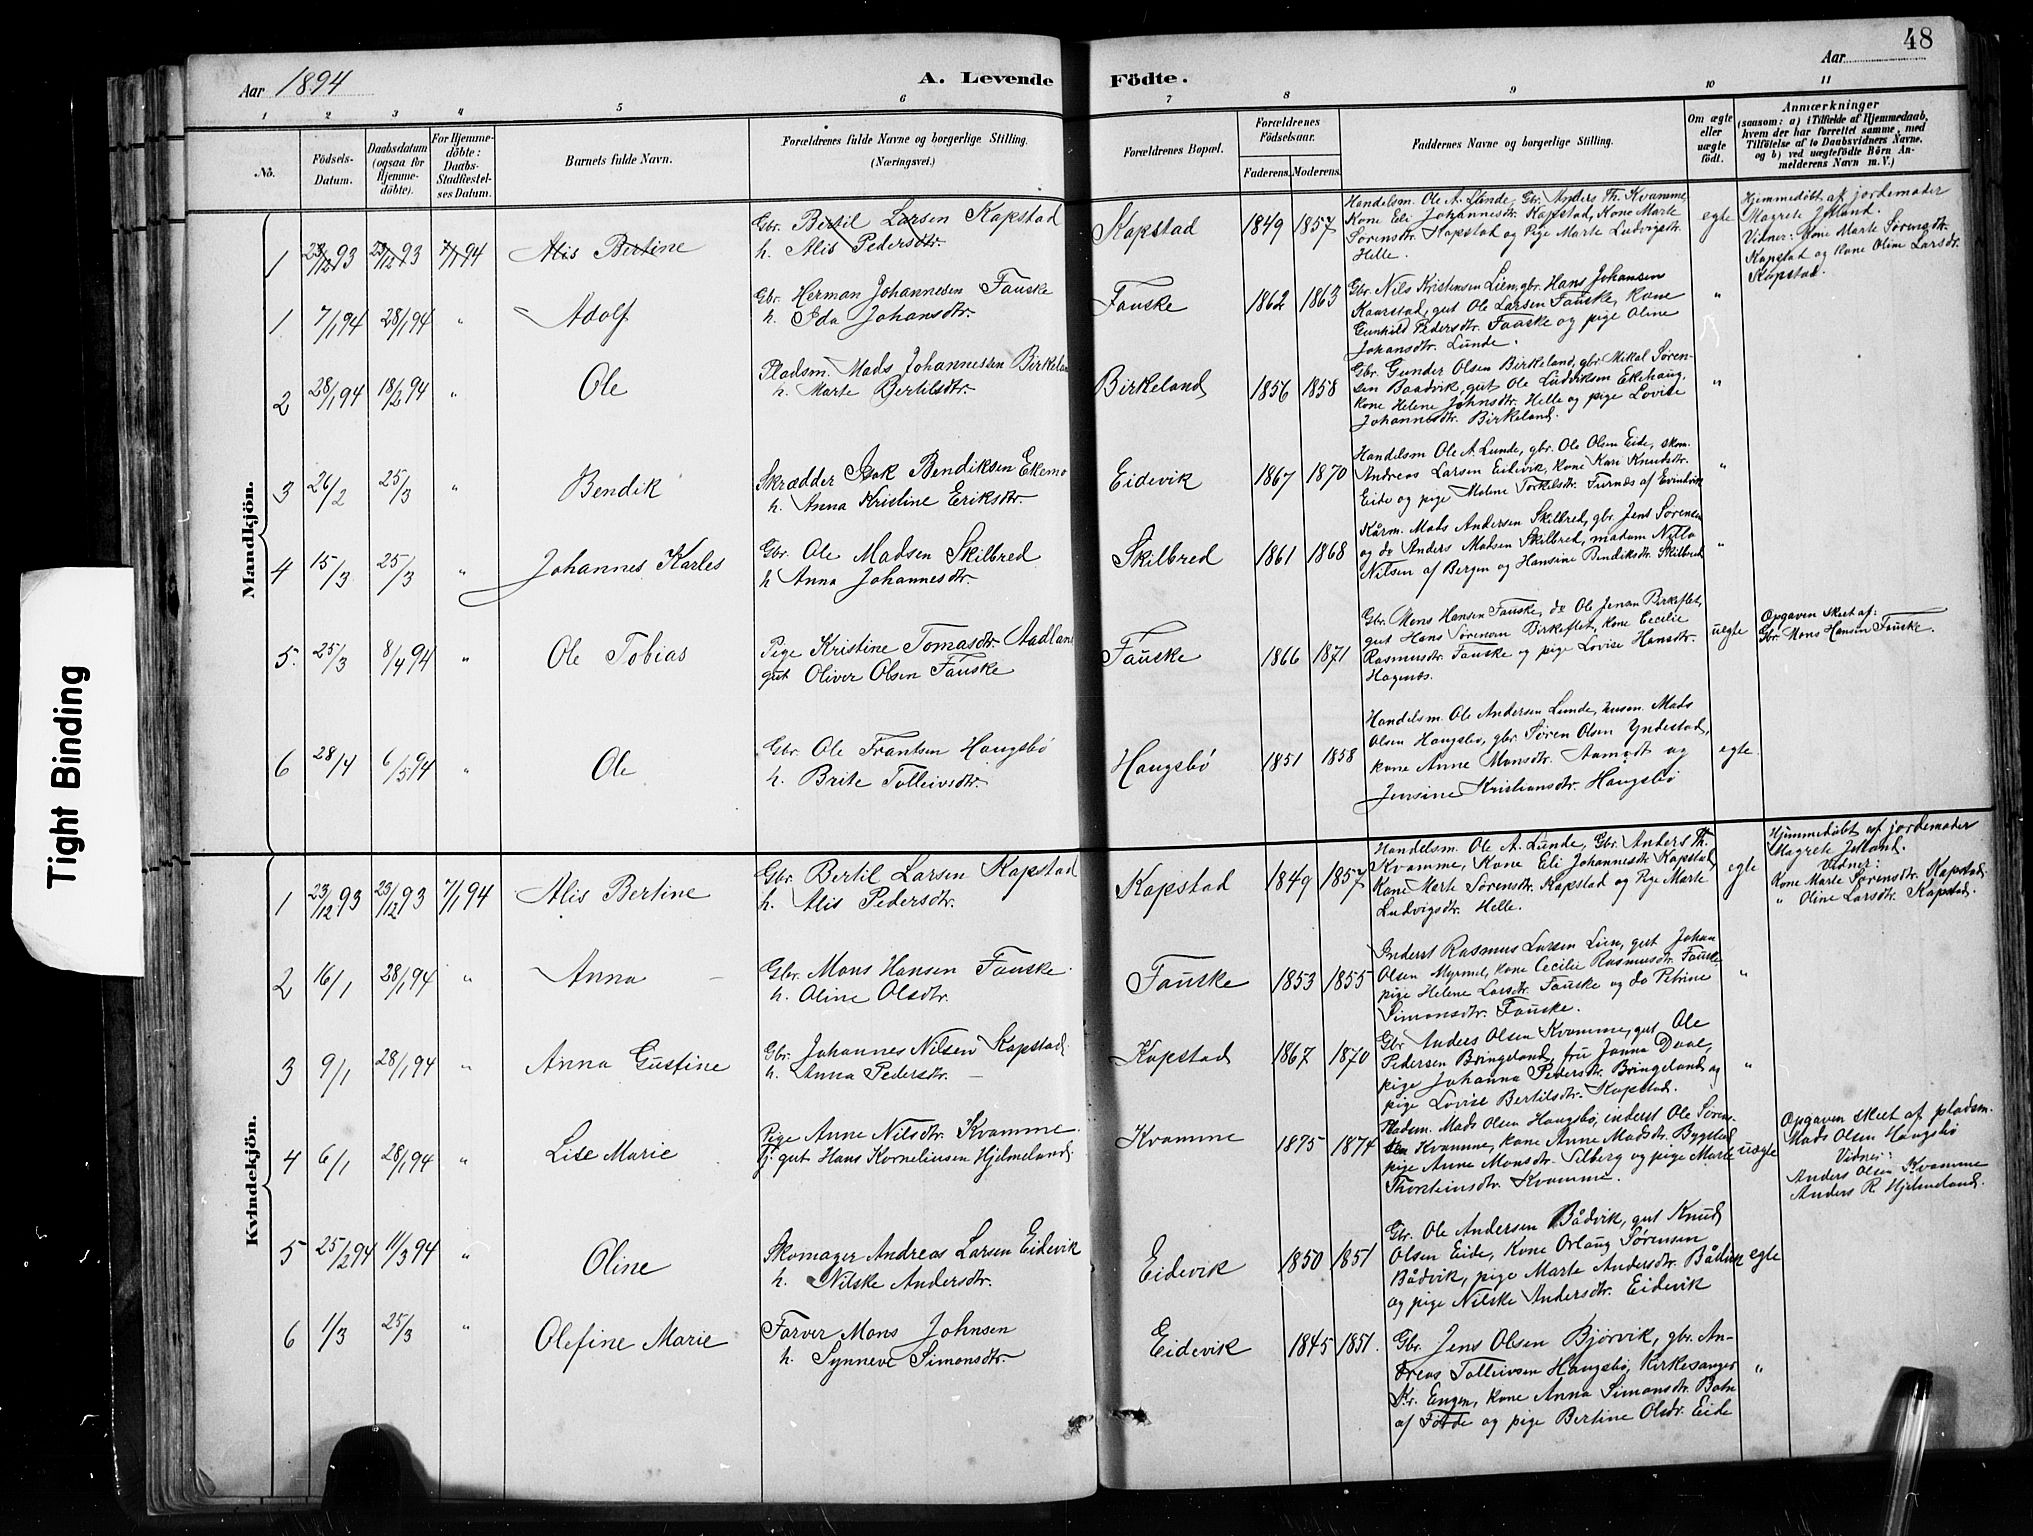 48
Aar 1894
A. Levende Födte.
Aar
1 2 3 4 5 6 7 8 9 10 11
No.
Födsels-Datum.
Daabsdatum (ogsaa for Hjemmedöbte).
For Hjemmedöbte: Daabs Stadfæstelses Datum.
Barnets fulde Navn.
Forældrenes fulde Navne og borgerlige Stilling. (Næringsvei.)
Forældrenes Bopæl.
Forældrenes Födselsaar.
Faderens. Moderens.
Faddernes Navne og borgerlige Stilling.
Om ægte eller uægte födt.
Anmærkninger
(saasom: a) i Tilfælde af Hjemmedaab,
hvem der har forrettet samme, med
Tilföielse af to Daabsvidners Navne,
og b) ved uægtefödte Börn An-
melderens Navn m. V.)
Mandkjön.
1 23/12 93 23/12 93 7/1 94 Alis Bertine
Gbr. Bertil Larsen Kapstad
h. Alis Pedersdtr.
Kapstad 1849 1857
Handelsm. Ole A. Lunde, Gbr. Anders Th. Kvamme,
Kone Eli Johannesdtr. Kapstad, Kone Marte
Sörensdtr. Kapstad og Pige Marte Ludvigsdtr.
Helle
egte
Hjemmedöbt af jordemoder
Magrete Jtland.
Vidner: Kone Marte Sörensdtr.
Kapstad og Kone Oline Larsdtr.
Kapstad.
1 7/1 94 28/1 94 " Adolf
Gbr. Herman Johannesen Fauske
h. Ida Johansdtr.
Fauske 1862 1863
Gbr. Nils Kristensen Lien, gbr. Hans Johansen
Kaarstad, gut Ole Larsen Fauske, Kone
Gunhild Pedersdtr. Fauske og pige Oline
Johansdtr. Lunde.
"
2 28/1 94 18/2 94 " Ole
Pladsm. Mads Johannessen Birkeland
h. Marte Bertilsdtr.
Birkeland 1856 1858
Gbr. Gunder Olsen Birkeland, gbr. Mikal Sören-
sen Baadvik, gut Ole Ludviksen Ekehaug,
kone Helene Johnsdtr. Helle og pige Lovise
Johannesdtr. Birkeland.
"
3 26/2 25/3 " Bendik
Skrædder Isak Bendiksen Ekemo
h. Anna Kristine Eriksdtr.
Eidevik 1867 1870
Handelsm Ole A. Lunde, gbr. Ole Olsen Eide, skom.
Andreas Larsen Eidevik, kone Kari Knudsdtr.
Eide og pige Malene Torkelsdtr. Furnæs af Evindvik
"
4 15/3 25/3 " Johannes Karles
Gbr. Ole Madsen Skilbred
h Anna Johannesdtr.
Skilbred 1861 1868
Kårm. Mads Andersen Skilbred, gbr. Jens Sörensen
og do Anders Madsen Skilbred, madam Nilla
Nilsen af Bergen og Hansine Bendiksdtr. Skilbred
"
5. 25/3 8/4 94 " Ole Tobias
Pige Kristine Tomasdtr. Aadland
gut Oliver Olsen Fauske
Fauske 1866 1871
Gbr. Mons Hansen Fauske, do Ole Jensen Birkeflet,
gut Hans Sörensen Birkeflet, kone Cecilie
Rasmusdtr. Fauske og pige Lovise Hansdtr.
uegte
Opgaven skeet af:
Gbr. Mons Hansen Fauske.
6 28/4 6/5 94 " Ole
Gbr. Ole Frantsen Haugsbö
h. Brite Tolleivsdtr.
Haugsbö 1851 1858
Handelsm. Ole Andersen Lunde, husm. Mads
Olsen Haugsbö, gbr. Sören Olsen Yndestad,
kone Anne Monsdtr. Aamodt og
Jensine Kristiansdtr. Haugsbö
egte
Kvindekjön.
1 23/12 93 23/12 93 7/1 94 Alis Bertine
Gbr. Bertil Larsen Kapstad
h. Alis Pedersdtr.
Kapstad 1849 1857
Handelsm. Ole A. Lunde, Gbr. Anders Th.
Kvamme, Kone Eli Johannesdtr Kapstad,
Kone Marte Sörensdtr. Kapstad og Pige Marte
Ludvigsdtr. Helle.
egte
Hjemmedöbt af jordemoder
Magrete Jtland.
Vidner:
Kone Marte Sörensdtr. Kapstad.
" Oline Larsdtr. Kapstad.
2 16/1 28/1 94 " Anna
Gbr. Mons Hansen Fauske.
h. Oline Olsdtr.
Fauske 1853 1855
Inderst Rasmus Larsen Lien, gut Johan
Olsen Myrmel, kone Cecilie Rasmusdtr. Fauske
pige Helene Larsdtr. Fauske og do Petrine
Simonsdtr. Fauske.
"
3 9/1 28/1 94 " Anna Gustine
Gbr. Johannes Nilsen Kapstad.
h. Anna Pedersdtr.
Kapstad 1867 1870
Gbr Anders Olsen Kvamme, gut Ole
Pedersen Bringeland, fru Janna Daae,
pige Johanna Pedersdtr. Bringeland og
pige Lovise Bertilsdtr. Kapstad.
"
4 6/1 28/1 94 " Lise Marie
Pige Anne Nilsdtr. Kvamme.
gut Hans Korneliusen Hjelmeland.
Kvamme 1875 1874
Pladsm. Mads Olsen Haugsbö, inderst Ole Sören-
sen Kvamme, kone Anne Madsdtr. Bygstad
pige Anne Monsdtr. Silberg og pige Marte
Thorsteinsdtr. Kvamme.
uegte
Opgaven skeet af pladsm.
Mads Olsen Haugsbö
Vidner:
Anders Olsen Kvamme
Anders R. Hjelmeland.
5 25/2 94 11/3 94 " Oline
Skomager Andreas Larsen Eidevik
h. Nilske Andersdtr.
Eidevik 1850 1851
Gbr. Ole Andersen Bådvik, gut Knud
Olsen Eide, Kone Orlaug Sörensen
Bådvik, pige Marte Andersdtr. Bådvik
og pige Nilske Andersdtr. Eidevik
egte
6 1/3 25/3 " Olefine Marie
Farver Mons Johnsen
h. Synneve Simonsdtr.
Eidevik 1845 1851.
Gbr. Jens Olsen Björvik, gbr. An-
dreas Tolleivsen Haugsbö, Kirkesanger
Kr. Engen, kone Anna Simonsdtr. Botn
af Förde og pige Bertine Olsdr. Eide
"
Tight Binding